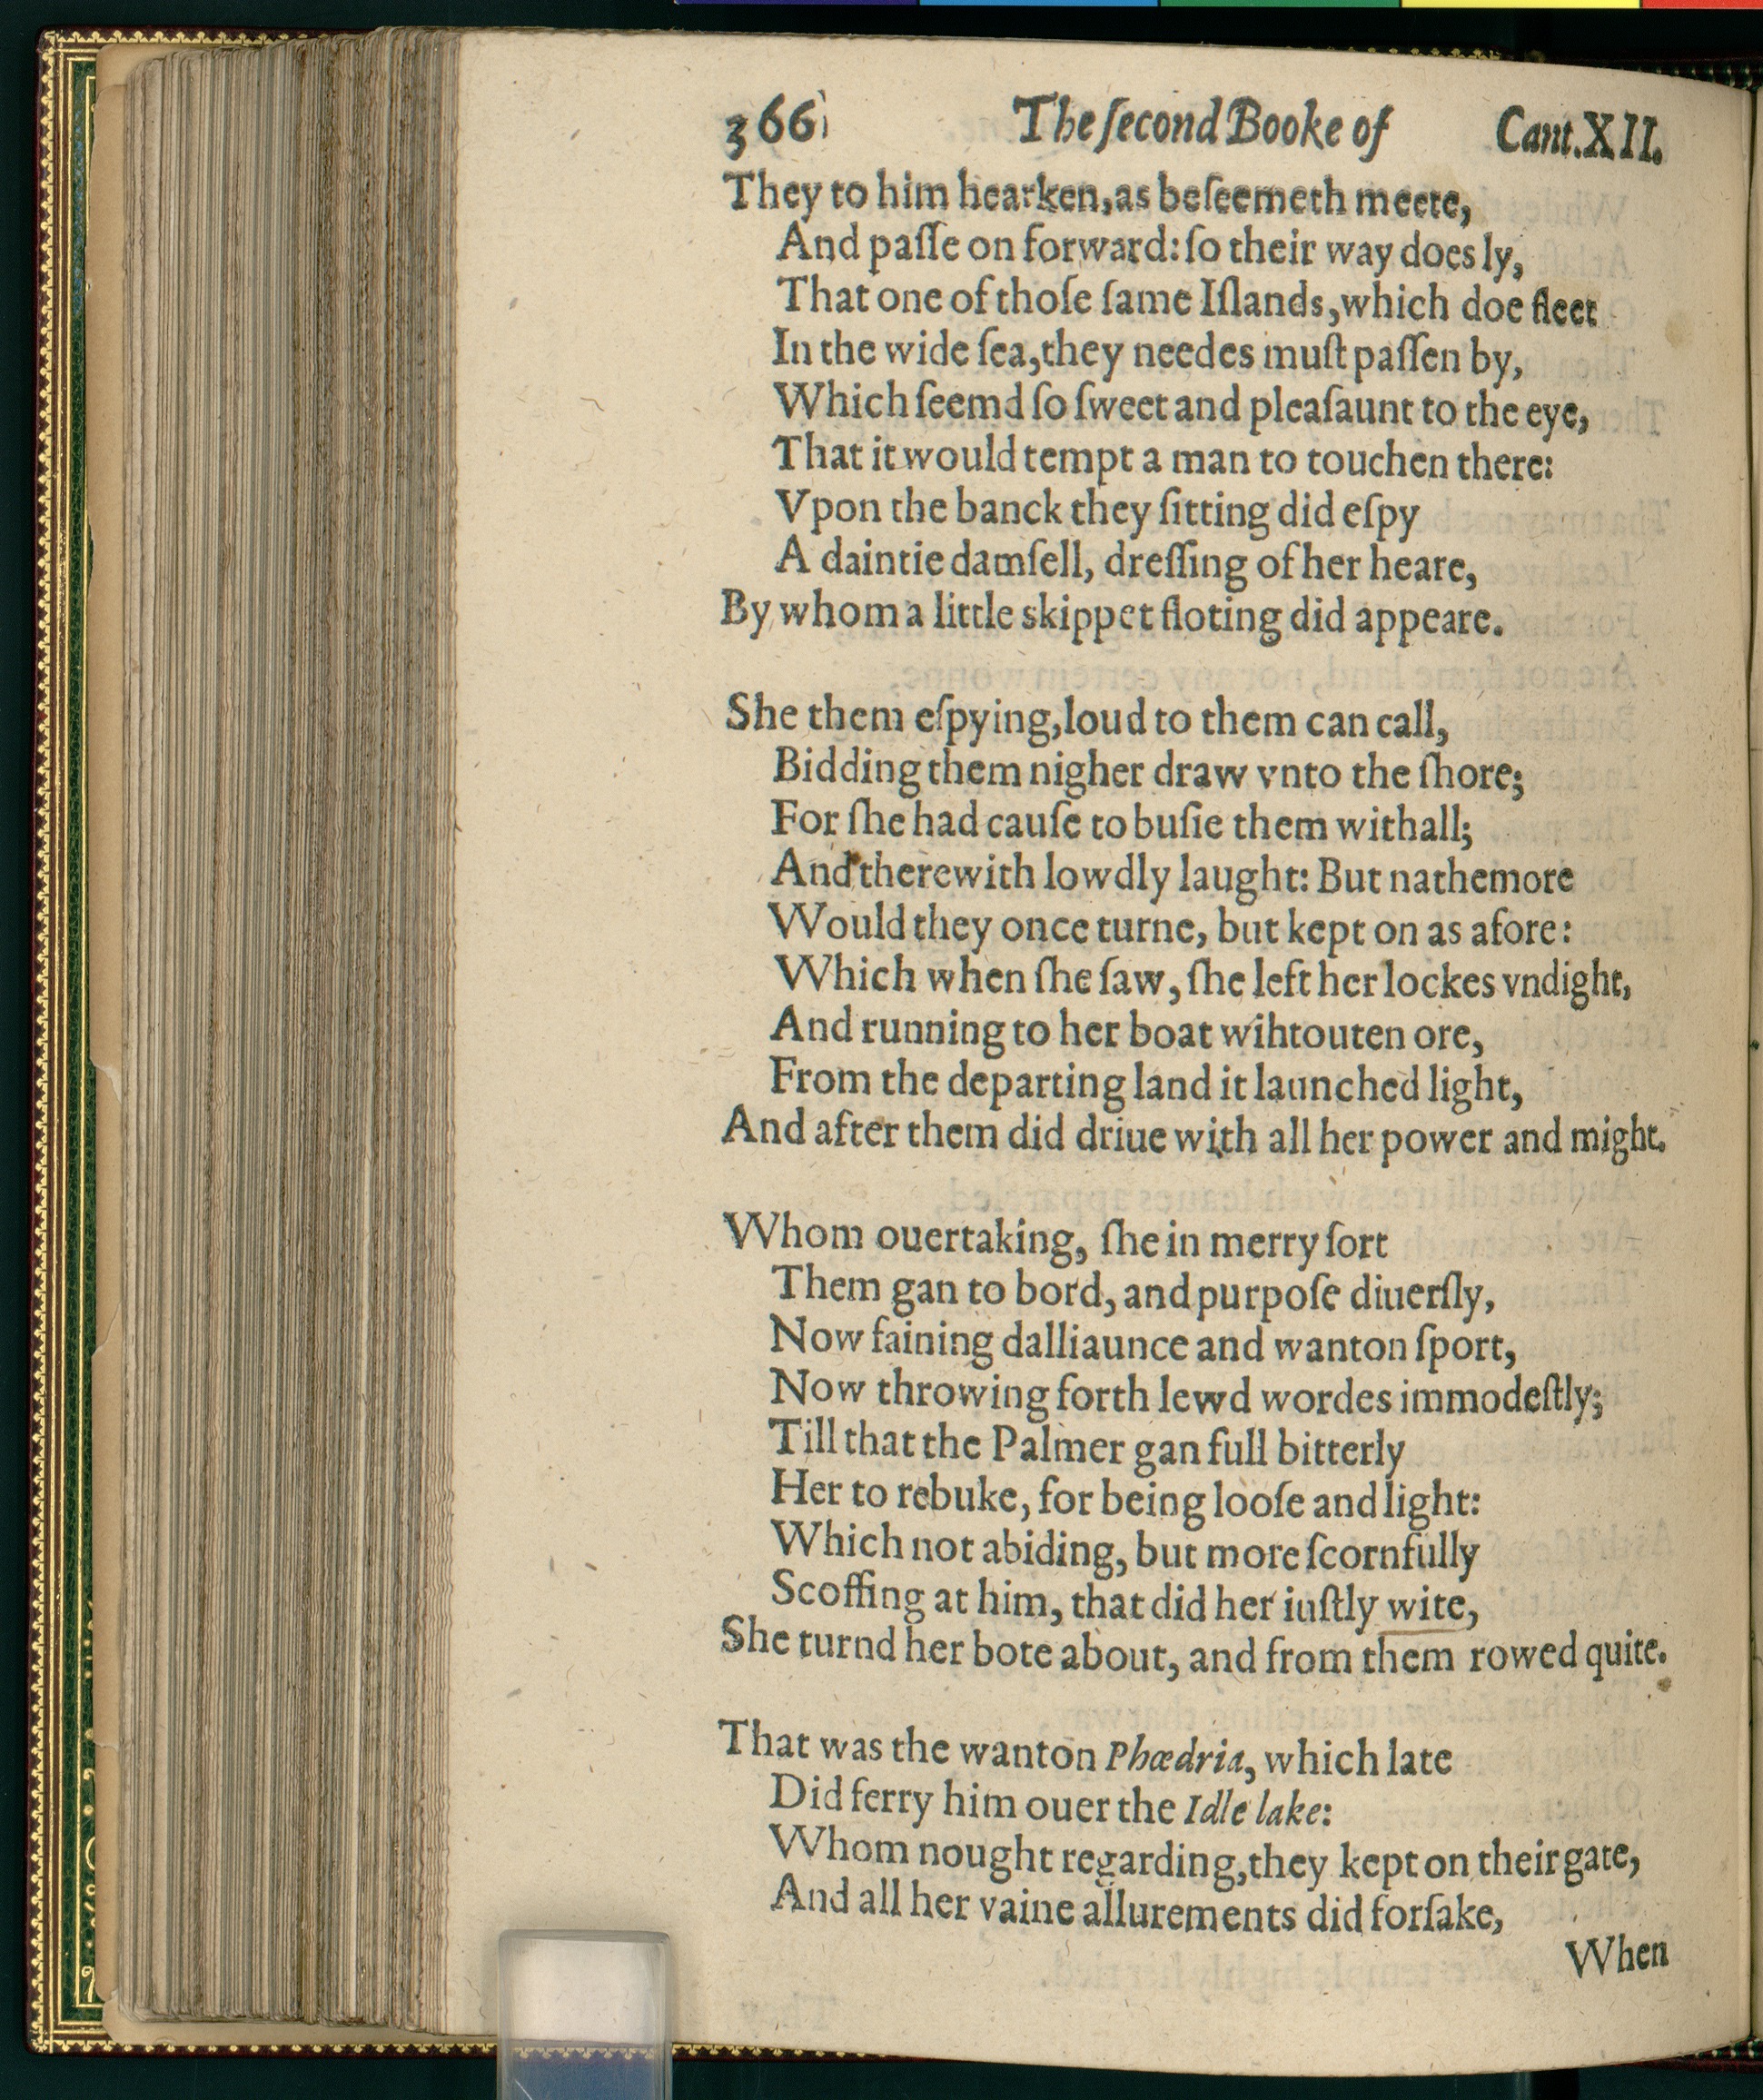 366 The ſecond Booke of Cant. XII.
They to him hearken, as beſeemeth meete,
And paſſe on forward: ſo their way does ly,
That one of thoſe ſame Iſlands, which doe fleet
In the wide ſea, they needes muſt paſſen by,
Which ſeemd ſo ſweet and pleaſaunt to the eye,
That it would tempt a man to touchen there:
Vpon the banck they ſitting did eſpy
A daintie damſell, dreſſing of her heare,
By whom a little skippet floting did appeare.
She them eſpying, loud to them can call,
Bidding them nigher draw vnto the ſhore;
For ſhe had cauſe to buſie them withall;
And therewith lowdly laught: But nathemore
Would they once turne, but kept on as afore:
Which when ſhe ſaw, ſhe left her lockes vndight,
And running to her boat wihtouten ore,
From the departing land it launched light,
And after them did driue with all her power and might.
Whom ouertaking, ſhe in merry ſort
Them gan to bord, and purpoſe diuerſly,
Now faining dalliaunce and wanton ſport,
Now throwing forth lewd wordes immodeſtly;
Till that the Palmer gan full bitterly
Her to rebuke, for being looſe and light:
Which not abiding, but more ſcornfully
Scoffing at him, that did her iuſtly wite,
She turnd her bote about, and from them rowed quite.
That was the wanton Phœdria, which late
Did ferry him ouer the Idle lake:
Whom nought regarding, they kept on their gate,
And all her vaine allurements did forſake,
When